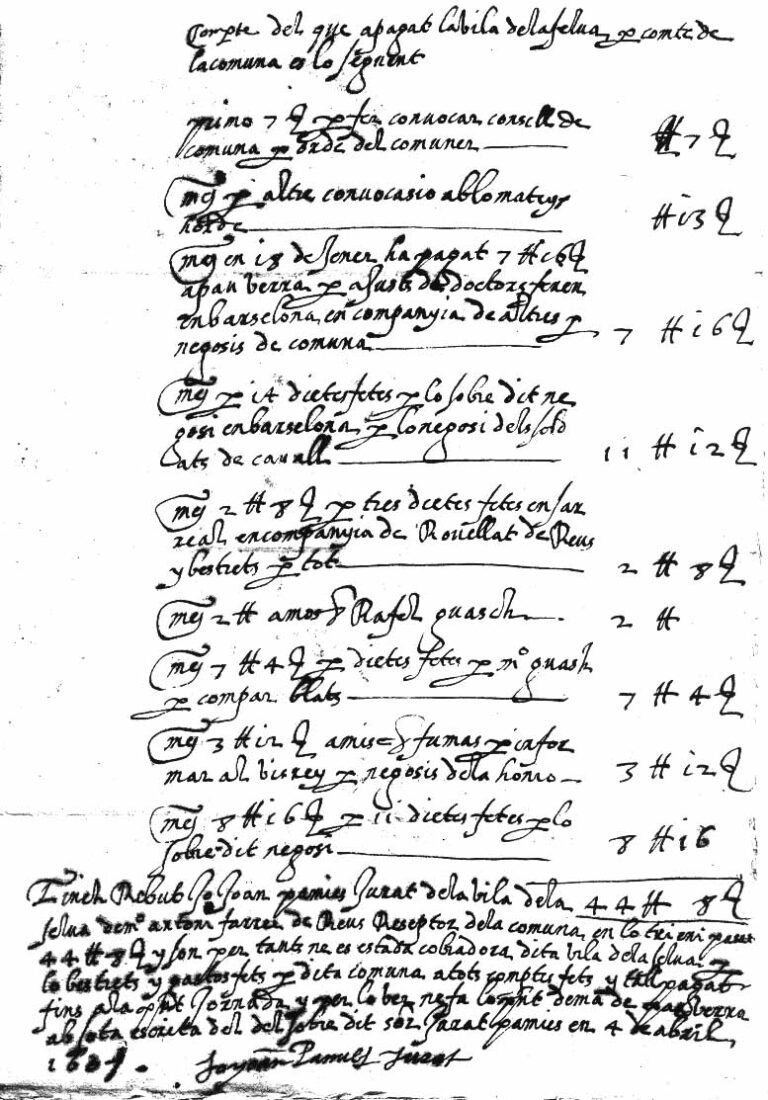 Compte del que a pagat la vila de la selva p comte de
la comuna es lo seguent
primo 7 ß p fer convocar consell de
comuna p orde del comuner ħ 7 ß
mes p altre convocasio ab lo mateys
horde ħ i3 ß
mes en i8 de jener ha pagat 7 ħ i6 ß
a pau verra p ajusts de doctors feren
en barselona en companyia de altres p
negosis de comuna 7 ħ i6 ß
mes p i4 dietes fetes p lo sobre dit ne
gosi en barselona p lo negosi dels sold
ats de cavall ii ħ i2 ß
mes 2 ħ 8 ß p tres dietes fetes en sar
real en companyia de Rovellat de Reus
y bestrets p tot 2 ħ 8 ß
mes 2 ħ a mosr Rafel guasch 2 ħ
mes 7 ħ 4 ß p dietes fetes p mº guash
p compar blats 7 ħ 4 ß
mes 3 ħ i2 ß a fumas p infor
mar al visrey p negosis de la 3 ħ i2 ß
mes 8 ħ i6 ß p ii dietes fetes p lo
sobre dit negosi 8 ħ i6
Tinch Rebut Jo Joan pamies Jurat de la vila de la 44 ħ 8 ß
selva de mº antoni farrer de Reus Reseptor de la comuna en lo trieni pasat
44 ħ 8 ß y son per tants ne es estada cobradora dita vila de la selva p
lo bestrets y gastos fets p dita comuna a tots comptes fets y tall pagat
fins a la pnt Jornada y per lo ver ne fa lo pnt de ma de pau verra
ab sota escrita del sobre dit sor Jurat pamies en 4 de abril
Joan Pamies Jurat